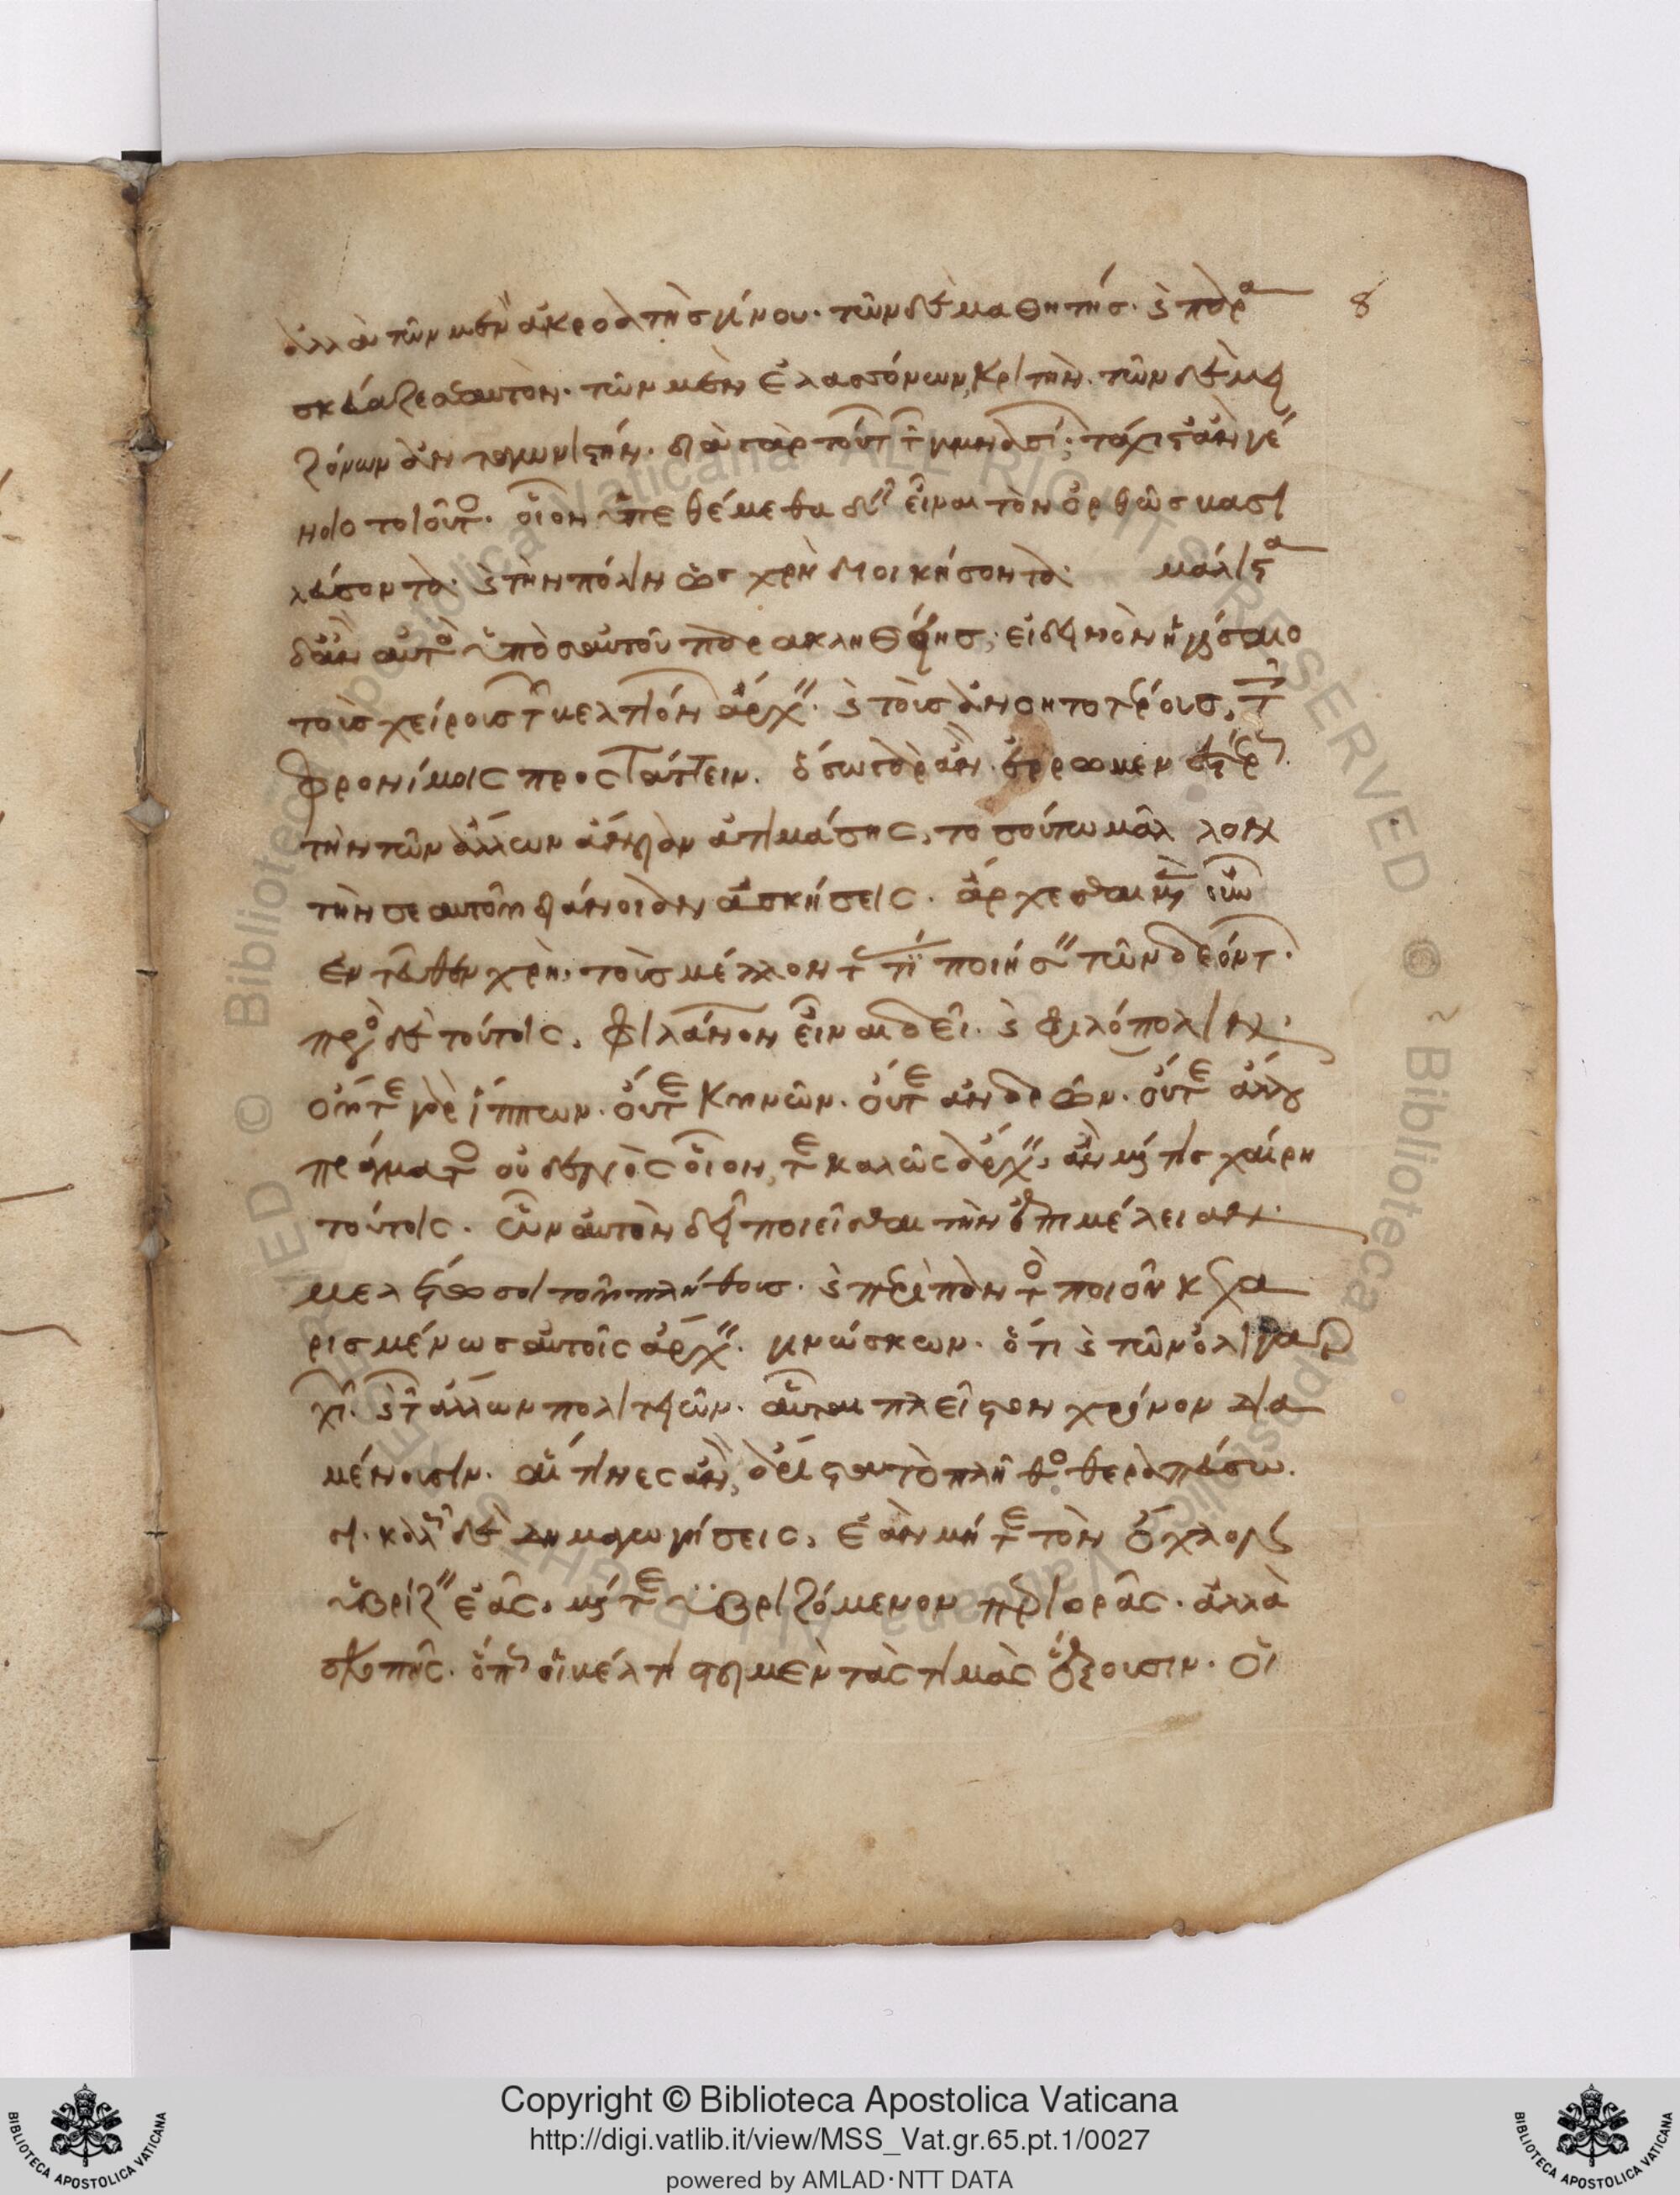 ἀλλὰ τῶν μὲν ἀκροατὴς γίνου· τῶν δὲ μαθητής· καὶ παρα
σκεύαζε σαυτὸν· τῶν μὲν ἐλαττόνων, κριτὴν· τῶν δὲ μει
ζόνων ἀνταγωνιστήν· διὰ γὰρ τούτων τῶν γυμνασίων· τάχιστ' ἂν γέ
νοιο τοιοῦτος· οἷον ὑπεθέμεθα δεῖν εἶναι τὸν ὀρθῶς βασι
λεύσοντα· καὶ τὴν πόλιν ὡς χρὴ διοικήσοντα· μάλιστα
δ' ἂν αὐτὸς ὑπὸ σαυτοῦ παρακληθείης· εἰ δεινὸν ἡγήσαιο
τοὺς χείρους τῶν βελτιόνων ἄρχειν· καὶ τοὺς ἀνοητοτέρους, τοῖς
φρονίμοις προστάττειν· ὅσω γὰρ ἂν ἐρρωμενεστέρως
τὴν τῶν ἄλλων ἄνοιαν ἀτιμάσης, τοσούτω μᾶλλον
τὴν σεαυτοῦ διάνοιαν ἀσκήσεις· ἄρχεσθαι μὲν οὖν
ἐντεῦθεν χρὴ, τοὺς μέλλοντάς τι ποιήσειν τῶν δεόντων·
πρὸς δὲ τούτοις, φιλάνθρωπον εἶναι δεῖ· καὶ φιλόπολιν·
οὔτε γὰρ ἵππων· οὔτε κυνῶν· οὔτε ἀνδρῶν· οὔτε ἄλλου
πράγματος οὐδενὸς οἷόν τε καλῶς ἄρχειν, ἂν μή τις χαίρη
τούτοις· ὧν αὐτὸν δεῖ ποιεῖσθαι τὴν ἐπιμέλειαν·
μελέτω σοι τοῦ πλήθους· καὶ περὶ παντὸς ποιοῦ κεχα
ρισμένως αὐτοῖς ἄρχειν· γινώσκων· ὅτι καὶ τῶν ὀλιγαρ
χιῶν· καὶ τῶν ἄλλων πολιτειῶν· αὗται πλεῖστον χρόνον δια
μένουσιν· αἵτινες ἂν ἄριστα τὸ πλῆθος θεραπεύσω
σι· καλῶς δὲ δημαγωγήσεις, ἐὰν μήτε τὸν ὄχλον
ὑβρίζειν ἐᾶς, μήτε ὑβριζόμενον περιορᾶς· ἀλλὰ
σκοπῆς· ὅπως οἱ βέλτιστοι μὲν τὰς τιμὰς ἕξουσιν· οἱ
8
Copyright © Biblioteca Apostolica Vaticana
http://digi.vatlib.it/view/MSS_Vat.gr.65.pt.1/0027
powered by AMLAD·NTT DATA